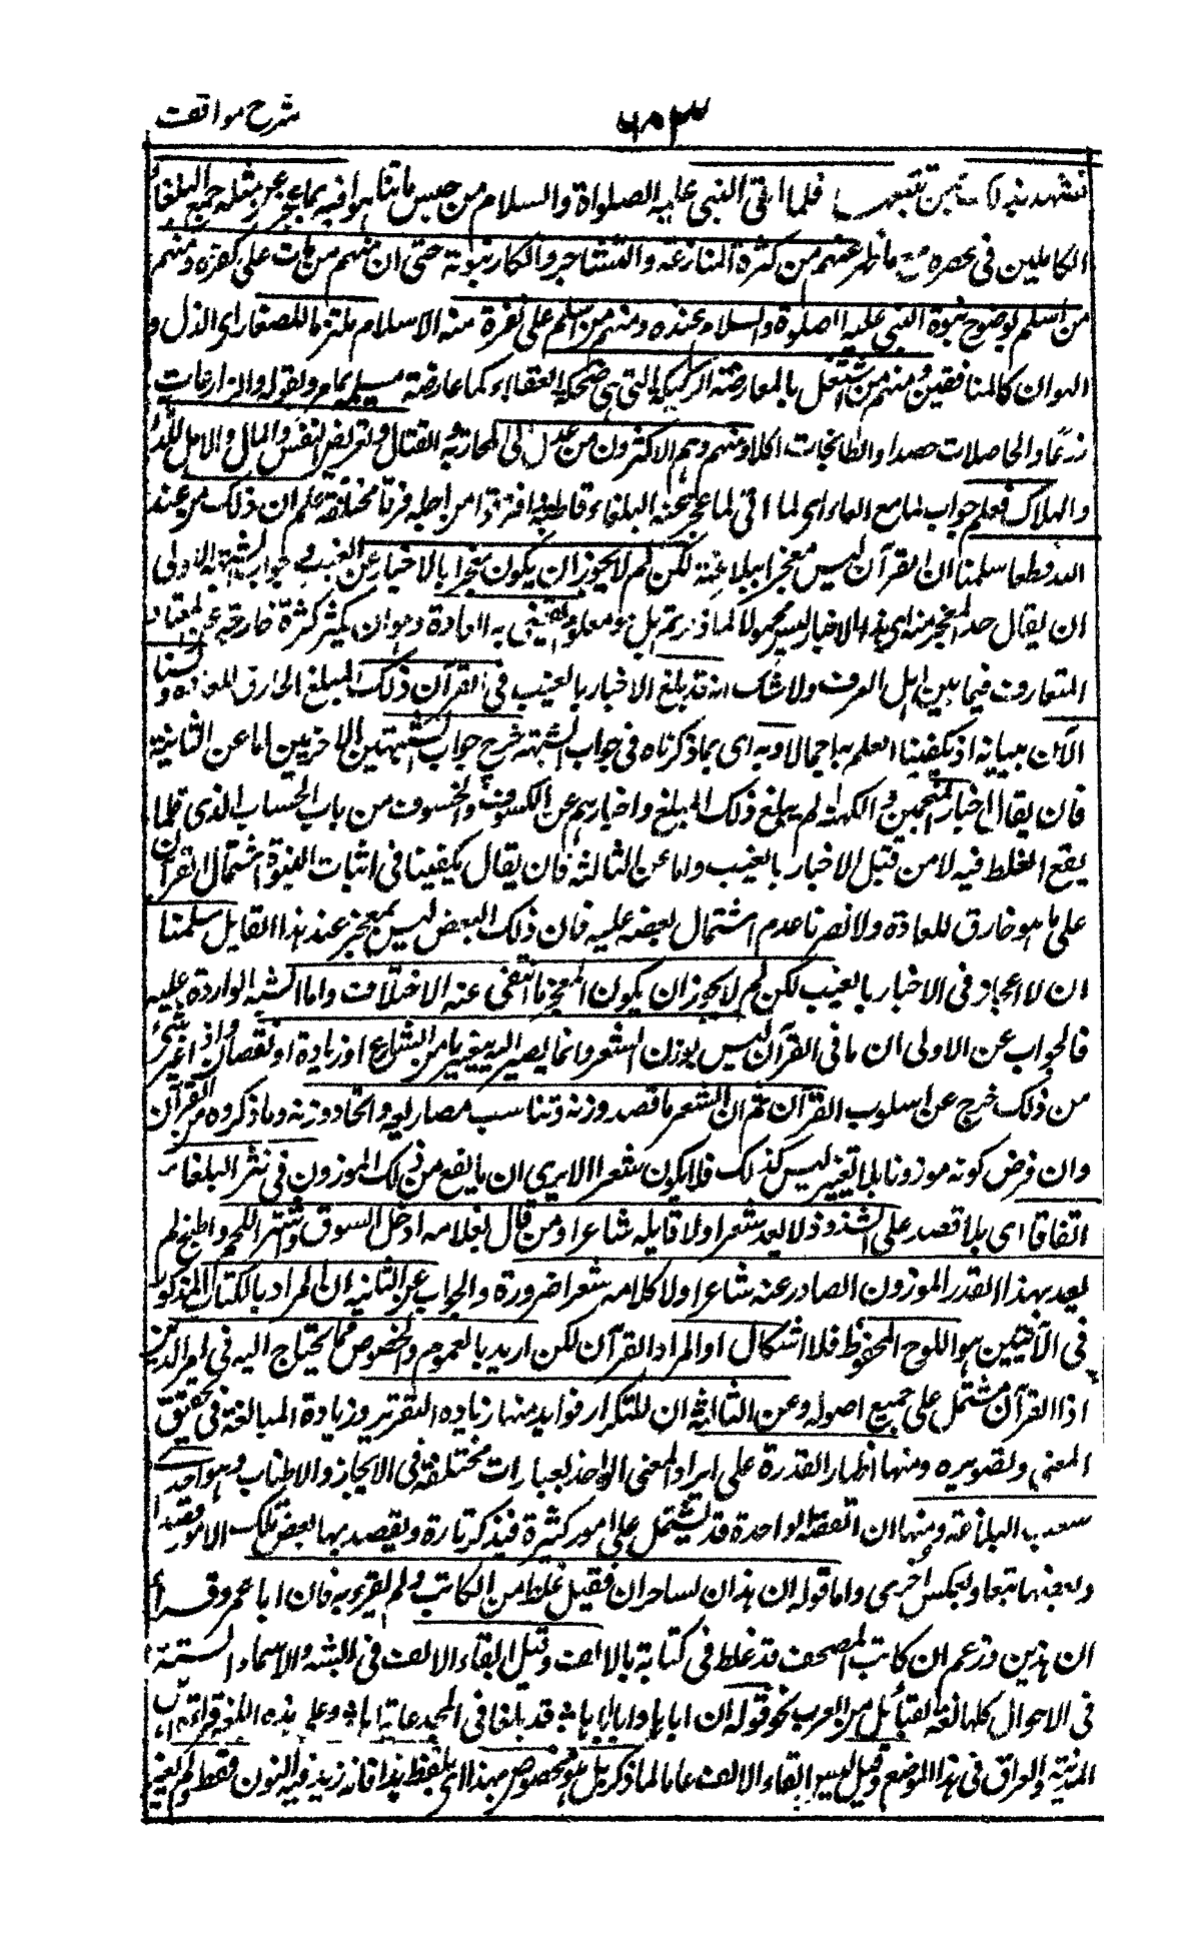 شرح مواقف
٦٠٣
تشهد بذلك تتبعها فلما اتى النبى عليه الصلواة والسلام من جنس ما تناهوا فيه بما عجز عن مثله جميع البلغاء
الكاملين فى عصره مع ما ظهر عنهم من كثرة المنازعة والتشاجر وانكار نبوته حتى ان منهم من مات على كفره ومنهم
من اسلم لوضوح نبوة النبى عليه الصلوة والسلام عنده ومنهم من اسلم على نفرة منه الاسلام ملتزما للصغار اى الذل و
الهوان كالمنافقين ومنهم من اشتغل بالمعارضة الركيكة التى هى ضحكة العقلاء كما عارضة مسيلمة بما مر وبقوله والزارعات
زرعا والحاصلات حصدا والطابخات اكلا ومنهم وهم الاكثرون من عدل الى المحاربة والقتال وتعريض النفس والمال والاهل للدمار
والهلاك فعلم جواب لما مع الفاء اى لما اتى لما عجز عنه البلغاء قاطبة وافترقوا من اجله فرقا مختلفة علم ان ذلك من عند
الله قطعا سلمنا ان القرآن ليس معجزا ببلاغته لكن لم لا يجوز ان يكون معجزا بالاخبار عن الغيب وجواب الشبهة الاولى
ان يقال حد المعجز منه اى من الاخبار ليس مجهولا كما ذكرتم بل هو معلوم يقضى به العادة وهو ان يكثر كثرة خارقة عن المعتاد
المتعارف فيما بين اهل العرف ولا شك انه قد بلغ الاخبار بالغيب فى القرآن ذلك المبلغ الخارق للعادة ولسنا
الآن ببيانه اذ يكفينا العلم به اجمالا وبه اى بما ذكرناه فى جواب الشبهة خرج جواب الشبهتين الاخريين اما عن الثانية
فان يقال اخبار المنجمين والكهنة لم يبلغ ذلك المبلغ واخبارهم عن الكسوف والخسوف من باب الحساب الذى قلما
يقع الغلط فيه لا من قبيل الاخبار بالغيب واما عن الثالثة فان يقال يكفينا فى اثبات النبوة اشتمال القرآن
على ما هو خارق للعادة ولا نضرنا عدم اشتمال بعضه عليه فان ذلك البعض ليس بمعجز عند هذا القايل سلمنا
ان لا اعجاز فى الاخبار بالغيب لكن لم لا يجوز ان يكون المعجز ما انتفى عنه الاختلاف واما الشبه الواردة عليه
فالجواب عن الاولى ان ما فى القرآن ليس بوزن الشعر وانما يصير اليه بتغيير ما من اشباع او زيادة او نقصان واذ اغير شئ
من ذلك خرج عن اسلوب القرآن ثم ان الشعر ما قصد وزنه وتناسب مصاريعه واتحاد وزنه وما ذكروه من القرآن
وان فرض كونه موزونا بلا تغيير ليس كذلك فلا يكون شعرا الا يرى ان ما يقع من ذلك الموزون فى نثر البلغاء
اتفاقا اى بلا قصد على الشذوذ لا يعد شعرا ولا قايله شاعرا ومن قال لغلامه ادخل السوق واشتر اللحم واطبخ لم
يعد بهذا القدر الموزون الصادر عنه شاعرا ولا كلامه شعرا ضرورة والجواب عن الثانية ان المراد بالكتاب المذكور
فى الآيتين هو اللوح المحفوظ فلا اشكال او المراد القرآن لكن اريد بالعموم والخصوص مما يحتاج اليه فى امر الدين
اذ القرآن مشتمل على جميع اصوله وعن الثالثة ان للتكرار فوايد منها زيادة التقرير وزيادة المبالغة فى تحقيق
المعنى وتصويره ومنها اظهار القدرة على ايراد المعنى الواحد بعبارات مختلفة فى الايجاز والاطناب وهو احد
شعب البلاغة ومنها ان القصة الواحدة قد تشتمل على امور كثيرة فيذكر تارة ويقصد بها بعض تلك الامور قصدا
وبعضها تبعا وبعكس اخرى واما قوله ان هذان لساحران فقيل غلط من الكاتب ولم يقرء به فان ابا عمرو قرأ
ان هذين وزعم ان كاتب المصحف قد غلط فى كتابة بالالف وقيل ابقاء الالف فى التثنية والاسماء الستة
فى الاحوال كلها لغة لقبائل من العرب نحو قوله ان اباها وابا اباها قد بلغا فى المجد غايتاها وعلى هذه اللغة قراءة اهل
المدينة والعراق فى هذا الموضع وقيل ليس ابقاء الالف عاما لما ذكر بل هو مخصوص بهذا اى بلفظ هذا فانه زيد فيه النون فقط ولم يغير